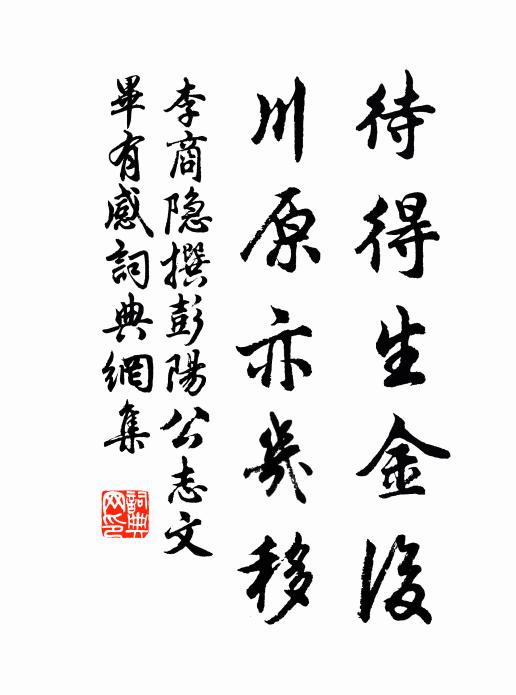 待得生金後
川原亦幾移
李商隐撰彭陽公志文
畢有感詞典網集
詞典
网印